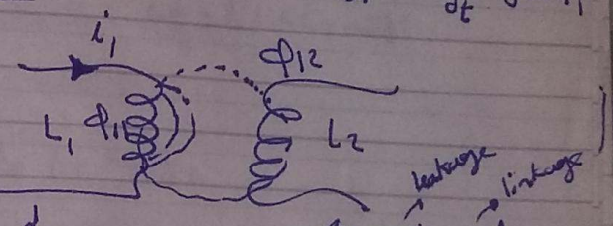 i₁
Φ₁₂
L₁ Φ₁₁ L₂
leakage
linkage